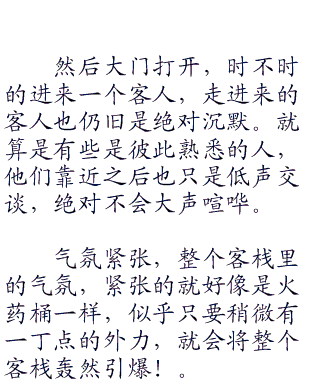 然后大门打开，时不时
的进来一个客人，走进来的
客人也仍旧是绝对沉默。就
算是有些是彼此熟悉的人，
他们靠近之后也只是低声交
谈，绝对不会大声喧哗。
气氛紧张，整个客栈里
的气氛，紧张的就好像是火
药桶一样，似乎只要稍微有
一丁点的外力，就会将整个
客栈轰然引爆！。